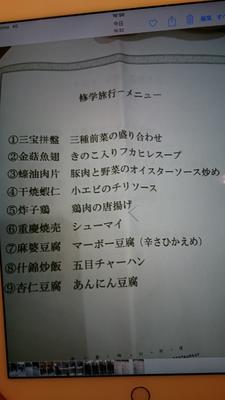 16:50
今日
16:32
編集
修学旅行ーメニュー
①三宝拼盤 三種前菜の盛り合わせ
②金菇魚翅 きのこ入りフカヒレスープ
③蠔油肉片 豚肉と野菜のオイスターソース炒め
④干焼蝦仁 小エビのチリソース
⑤炸子鶏 鶏肉の唐揚げ
⑥重慶焼売 シューマイ
⑦麻婆豆腐 マーボー豆腐（辛さひかえめ）
⑧什錦炒飯 五目チャーハン
⑨杏仁豆腐 あんにん豆腐